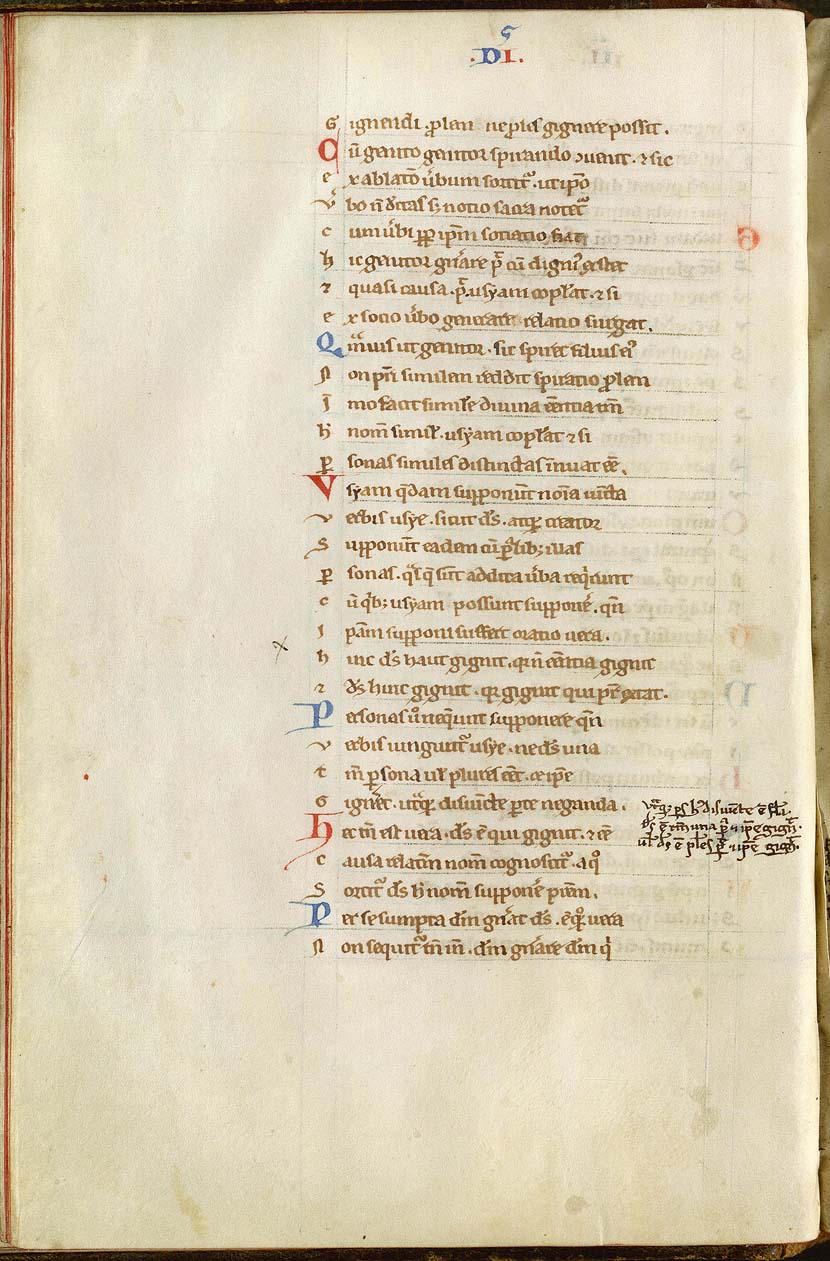 .DI.
G ignendi prolem ne proles gignere possit.
C ū genito genitor spirando ꝯuenit. ⁊ sic
e x ablatō ũbum sortit᷑. ut ipō
v̓ bo nō deitas sꝫ notio sacra notet᷑
c um ũbi ꝓp ipm̄ sotiatio fiat
h ic genitor gn̄are
⁊ quasi causa. usyam cop̄lat. ⁊ si
e x socio ũbo generare relatio surgat.
Q m̄uis ut genitor. sic spiret filius ei᷒
N on pr̄i similem reddit spiratio prolem
I mo facit simile diuina eēntia tm̄
h nom̄ simil̓. usyam cop̄lat ⁊ si
ꝑ sonas similes distinctas īnuat eē.
V syam q̄dam supponunt noīa uincta
v erbis usye. sicut ds̄. atqꝫ creator
S upponunt eadem cū illas
ꝑ sonas. addita ũba reqͥrunt
c ū qͥbꝫ usyam possunt supponē̓. qn̄
I pam supponi suffert oratio uera.
h inc ds̄ haut gignit. eēntia gignit
⁊ ds̄ hinc gignit. qr gignit qui pat̓ extat.
P ersonas ũo neqͥunt supponere qn̄
v erbis iungunt᷑ usye. ne ds̄ una
t m̄ ꝑsona ul̓ plures eēt. ceu ipe
G igneret. utraqꝫ disiuncte parte neganda.
H ec tm̄ est uera. ds̄ ē qui gignit. ⁊ eē
c ausa relatēm nom̄ cognoscit᷑. a qͦ
S ortit᷑ ds̄ h̓ nom̄ supponē̓ p̄rem.
P er se sumpta dm̄ gn̄at ds̄. ē qͦꝫ uera
N on sequit᷑ tn̄ in. dm̄ gn̄are dm̄ qͥ